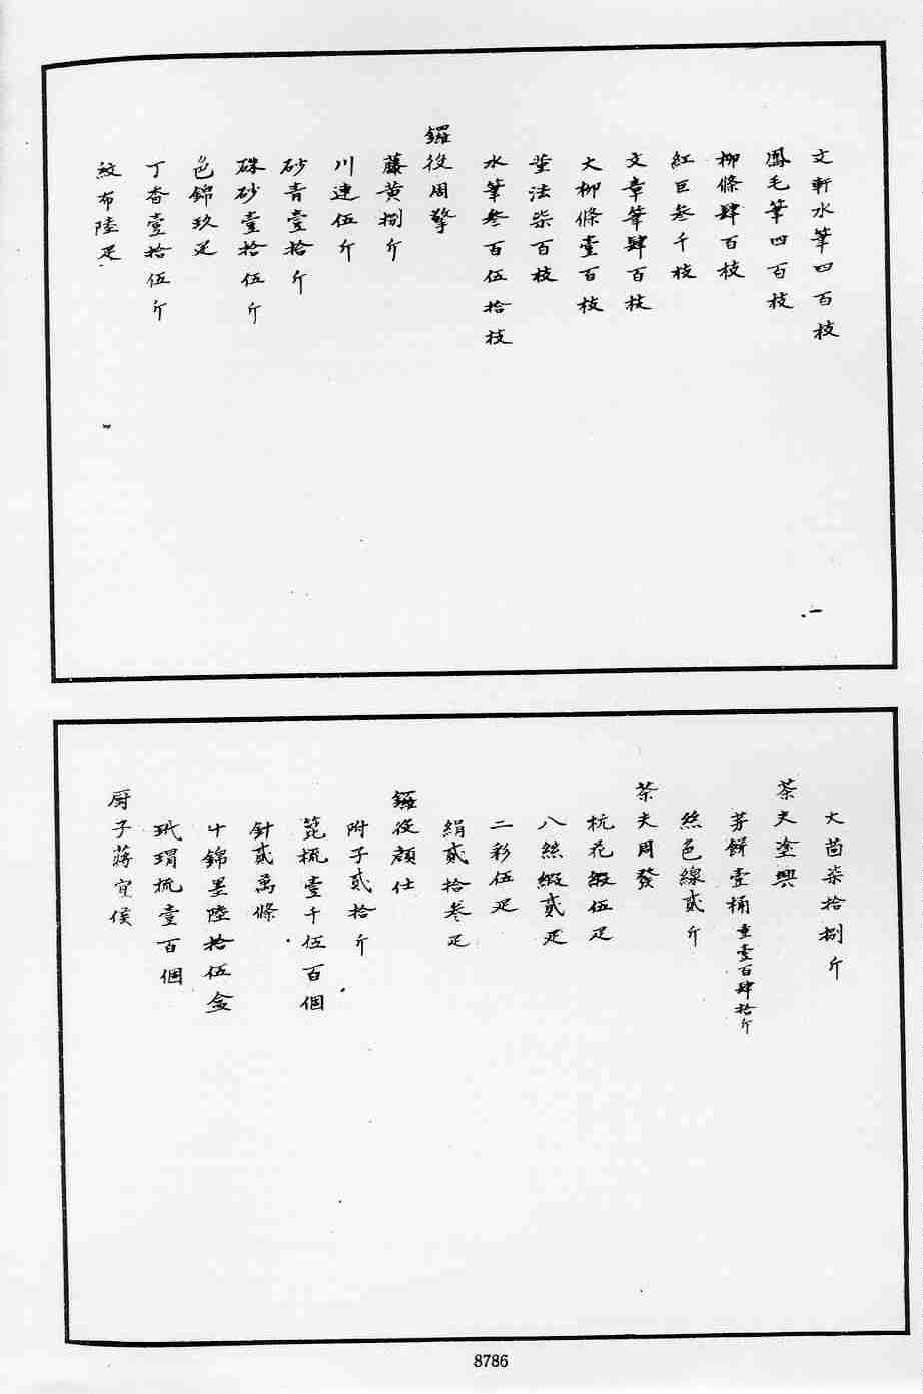 文軒水筆四百枝
鳳毛筆四百枝
柳條肆百枝
紅巨叁千枝
文章筆肆百枝
大柳條壹百枝
堂法柒百枝
水筆叁百伍拾枝
鑼役周擎
藤黃捌斤
川連伍斤
砂青壹拾斤
硃砂壹拾伍斤
色錦玖疋
丁香壹拾伍斤
紋布陸疋
大茴柒拾捌斤
茶夫塗興
茅餅壹桶重壹百肆拾斤
絲色線貳斤
茶夫周發
杭花緞伍疋
八絲緞貳疋
二彩伍疋
絹貳拾叁疋
鑼役顏仕
附子貳拾斤
篦梳壹千伍百個
針貳萬條
十錦墨陸拾伍盒
玳瑁梳壹百個
厨子蔣宜侯
8786